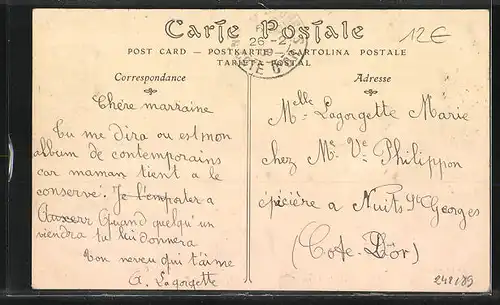 Carte Postale
12€
26-2
POST CARD — POSTKARTE — CARTOLINA POSTALE
TARJETA POSTAL
CÔTE D'OR
Correspondance
Chère marraine
Tu me dira ou est mon
album de contemporains
car maman tient a le
conservé. Je l'emporter a
Auxerr Quand quelqu'un
viendra tu lui donnera
Ton neveu qui t'aime
G. Lagorgette
Adresse
Melle Lagorgette Marie
chez Me Ve Philippon
épicière a Nuits St Georges
(Cote-D'or)
248189